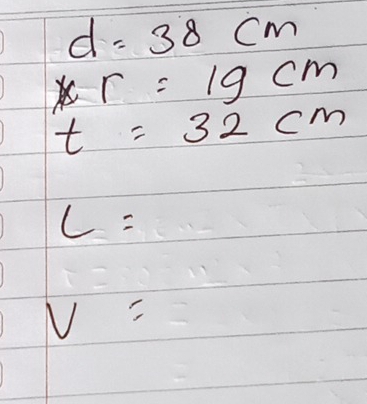 d = 38 cm
r = 19 cm
t = 32 cm
L =
V =